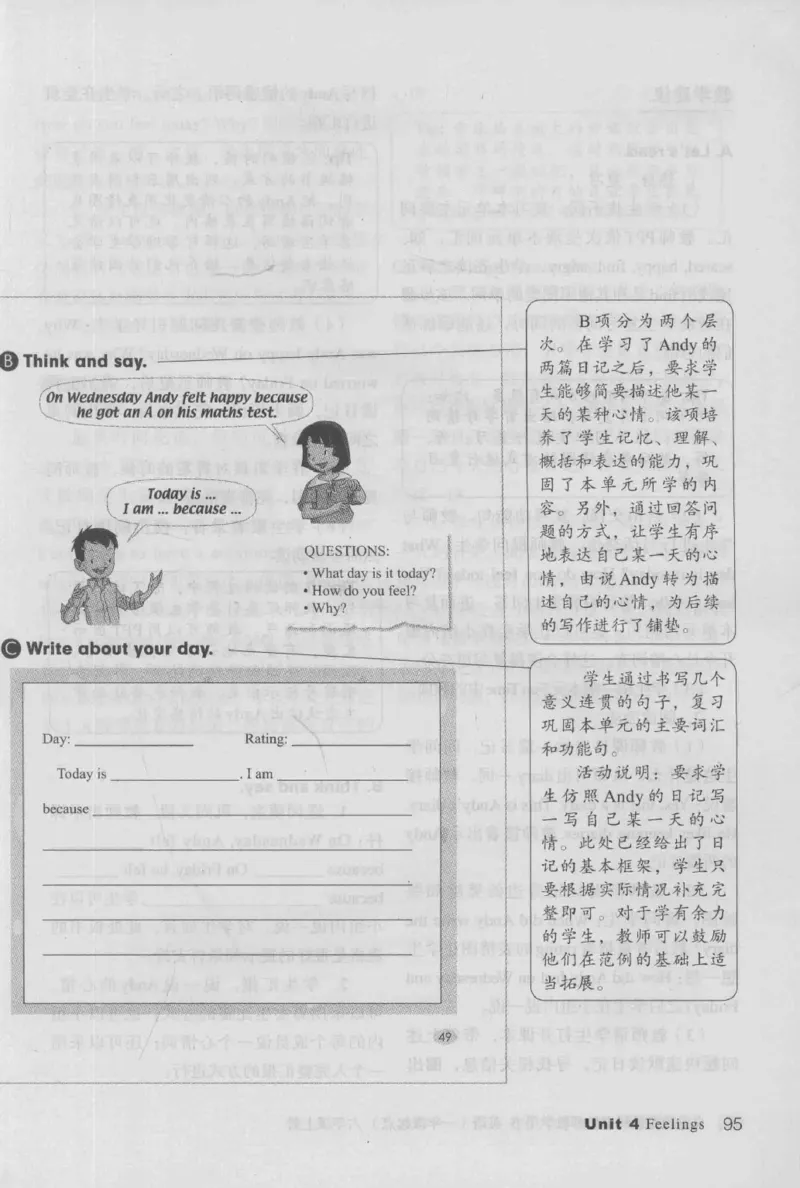 B Think and say.
On Wednesday Andy felt happy because
he got an A on his maths test.
Today is ...
I am ... because ...
QUESTIONS:
• What day is it today?
• How do you feel?
• Why?
C Write about your day.
Day:
Rating:
Today is
. I am
because
49
B项分为两个层
次。在学习了Andy的
两篇日记之后，要求学
生能够简要描述他某一
天的某种心情。该项培
养了学生记忆、理解、
概括和表达的能力，巩
固了本单元所学的内
容。另外，通过回答问
题的方式，让学生有序
地表达自己某一天的心
情，由说Andy转为描
述自己的心情，为后续
的写作进行了铺垫。
学生通过书写几个
意义连贯的句子，复习
巩固本单元的主要词汇
和功能句。
活动说明：要求学
生仿照Andy的日记写
一写自己某一天的心
情。此处已经给出了日
记的基本框架，学生只
要根据实际情况补充完
整即可。对于学有余力
的学生，教师可以鼓励
他们在范例的基础上适
当拓展。
Unit 4 Feelings 95